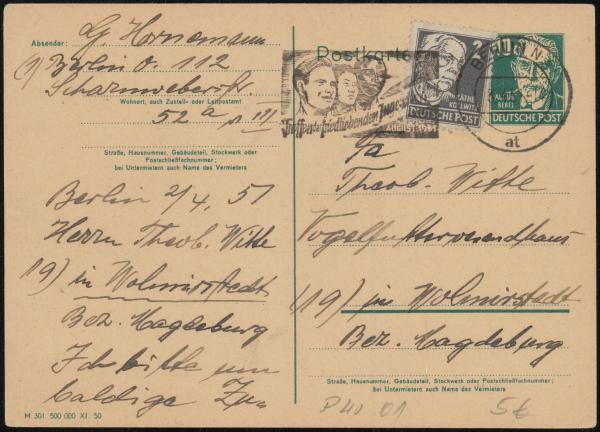 Absender: G. Hornemann
(1) Berlin O. 112
Scharnweberstr.
Wohnort, auch Zustell- oder Leitpostamt
52a
Straße, Hausnummer, Gebäudeteil, Stockwerk oder
Postschließfachnummer;
bei Untermietern auch Name des Vermieters
Berlin 2/4. 51
Herrn Theob. Witte
19) in Wolmirstedt
Bez. Magdeburg
Ich bitte um
baldige Zu=
M 301 500 000 XI. 50
Postkarte
Treffen der friedliebenden Jugend
AUGUST 1951
2
KÄTHE
KOLLWITZ
DEUTSCHE POST
BERLIN
at
AUGUST
BEBEL
DEUTSCHE POST
Fa
Theob. Witte
Vogelfutterversandhaus
(19) in Wolmirstedt
Bez. Magdeburg
Straße, Hausnummer, Gebäudeteil, Stockwerk oder Postschließfachnummer;
bei Untermietern auch Name des Vermieters
P40 01
5€